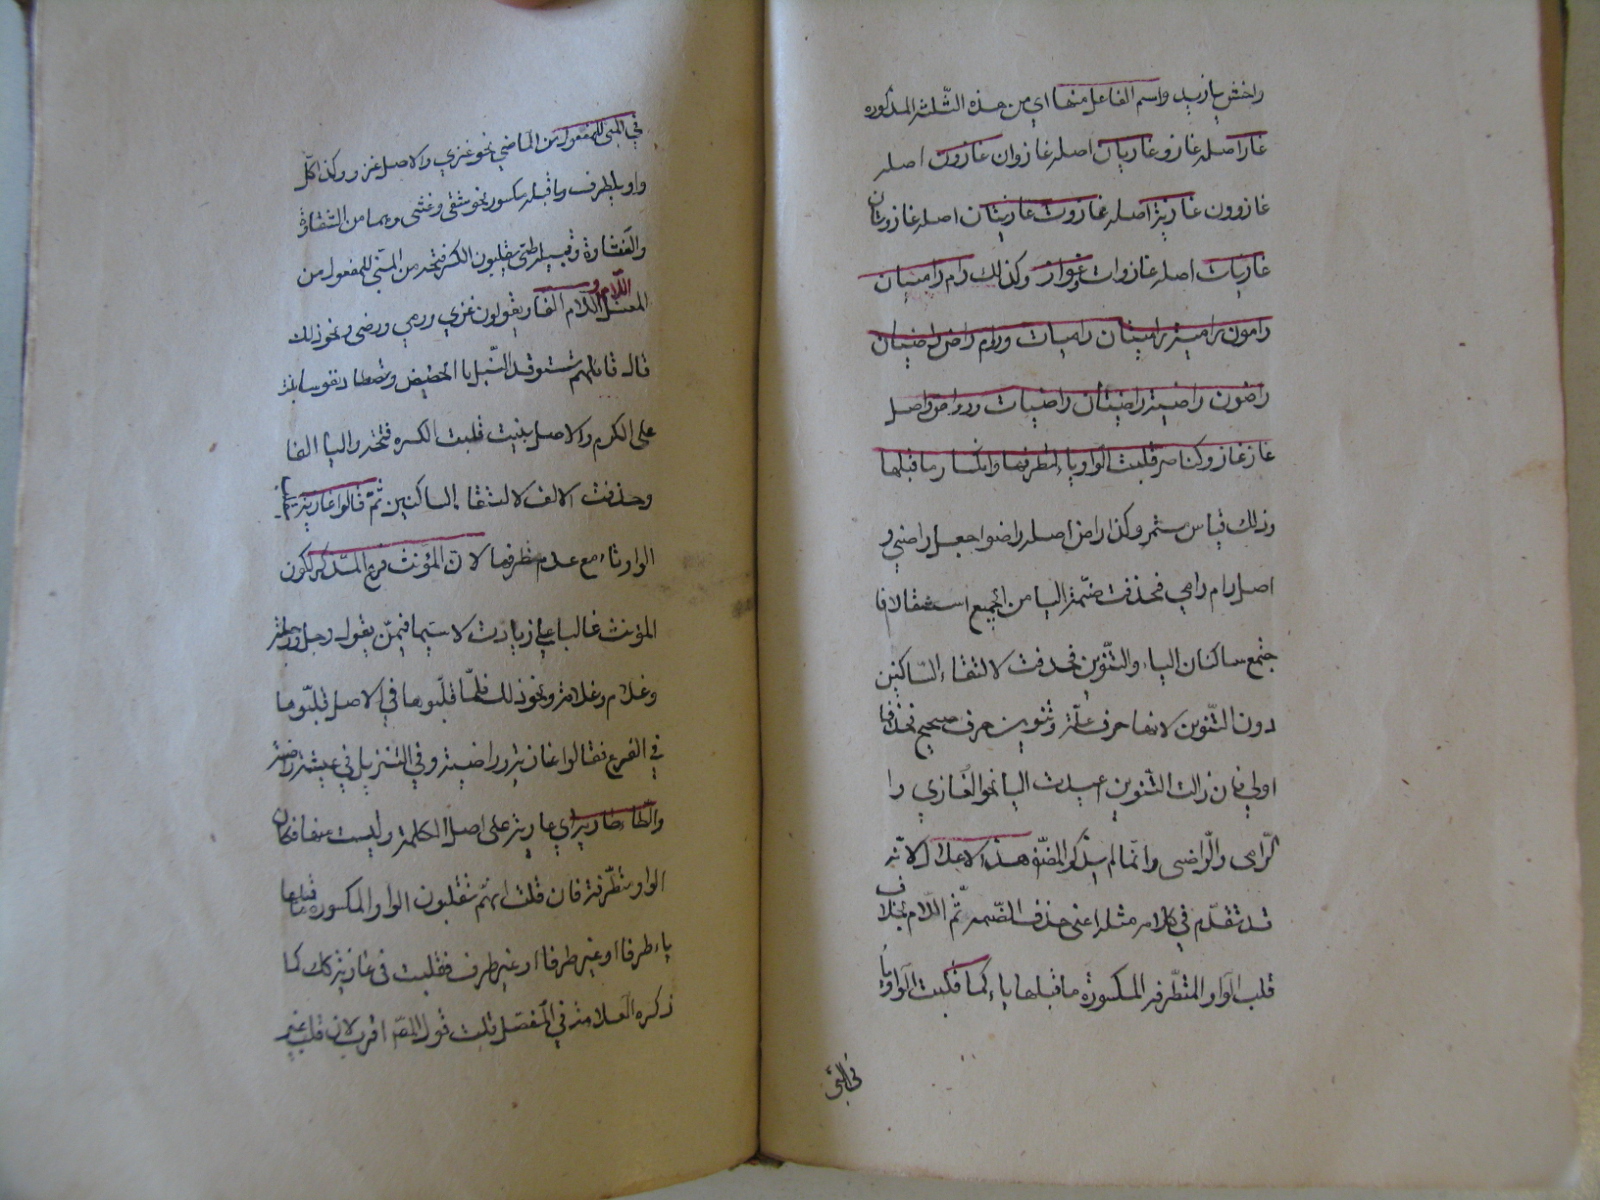 واخش يا زيد واسم الفاعل منها اي من هذه الثلثة المذكوره
غاز اصله غازو غازيان اصله غازوان غازون اصله
غازوون غازية اصله غازوة غازيتان اصله غازوتان
غازيات اصله غازوات وغواز وكذلك رام راميان
رامون رامية راميتان راميات وروام راض راضيان
راضون راضية راضيتان راضيات ورواض واصل
غاز غازو كناصر قلبت الواو ياء لتطرفها وانكسار ما قبلها
وذلك قياس مستمر وكذا راض اصله راضو جعل راضي و
اصل رام رامي فحذفت ضمة اليا من الجميع استثقالا فا
جتمع ساكنان الياء والتنوين فحذفت لالتقاء الساكنين
دون التنوين لانها حرف علة وتنوين حرف صحيح فحذفها
اولي فان زالت التنوين اعيدت اليا نحو الغازي وا
لرامي والراضي وانما لم يذكر المصنف هذا الاعلال لانه
قد تقدم في كلامه مثله اعني حذف الضمه ثم اللام بخلاف
قلب الواو المتطرفة المكسورة ما قبلها ياء كما قلبت الواو يا
في المبنى
في المبنى للمفعول من الماضي نحو غزي والاصل غزو وكذا كل
واو بطرف وما قبله مكسور نحو شقي وغشي وهما من الشقاوة
والغشاوة وقبيلة طي يقلبون الكسر فتحة من المبني للمفعول من
المعتل اللام الفا ويقولون غزي ورمي ورضي ونحو ذلك
قال قائلهم نستوقد النبل بالحضيض ونصطاد نفوسا بنت
على الكرم والاصل بنيت قلبت الكسره فتحة واليا الفا
وحذفت الالف لالتقاء الساكنين ثم قالوا غازية
الواو ياء مع عدم تطرفها لان المؤنث فرع المذكر لكون
المؤنث غالبا علي زيادت لا سيما فيمن يقول رجل ورجلة
وغلام وغلامة ونحو ذلك فلما قلبوها في الاصل قلبوها
في الفرع فقالوا غازية وراضية وفي التنزيل في عيشة راضية
والتاء طارية اي عارية على اصل الكلمة وليست منها فكان
الواو متطرفة فان قلت انهم يقلبون الواو المكسوره ما قبلها
ياء طرفا او غير طرفا او غير طرف فقلبت في غازية كك كما
ذكره العلامة في المفصل قلت قول المص اقرب لان قلب غير